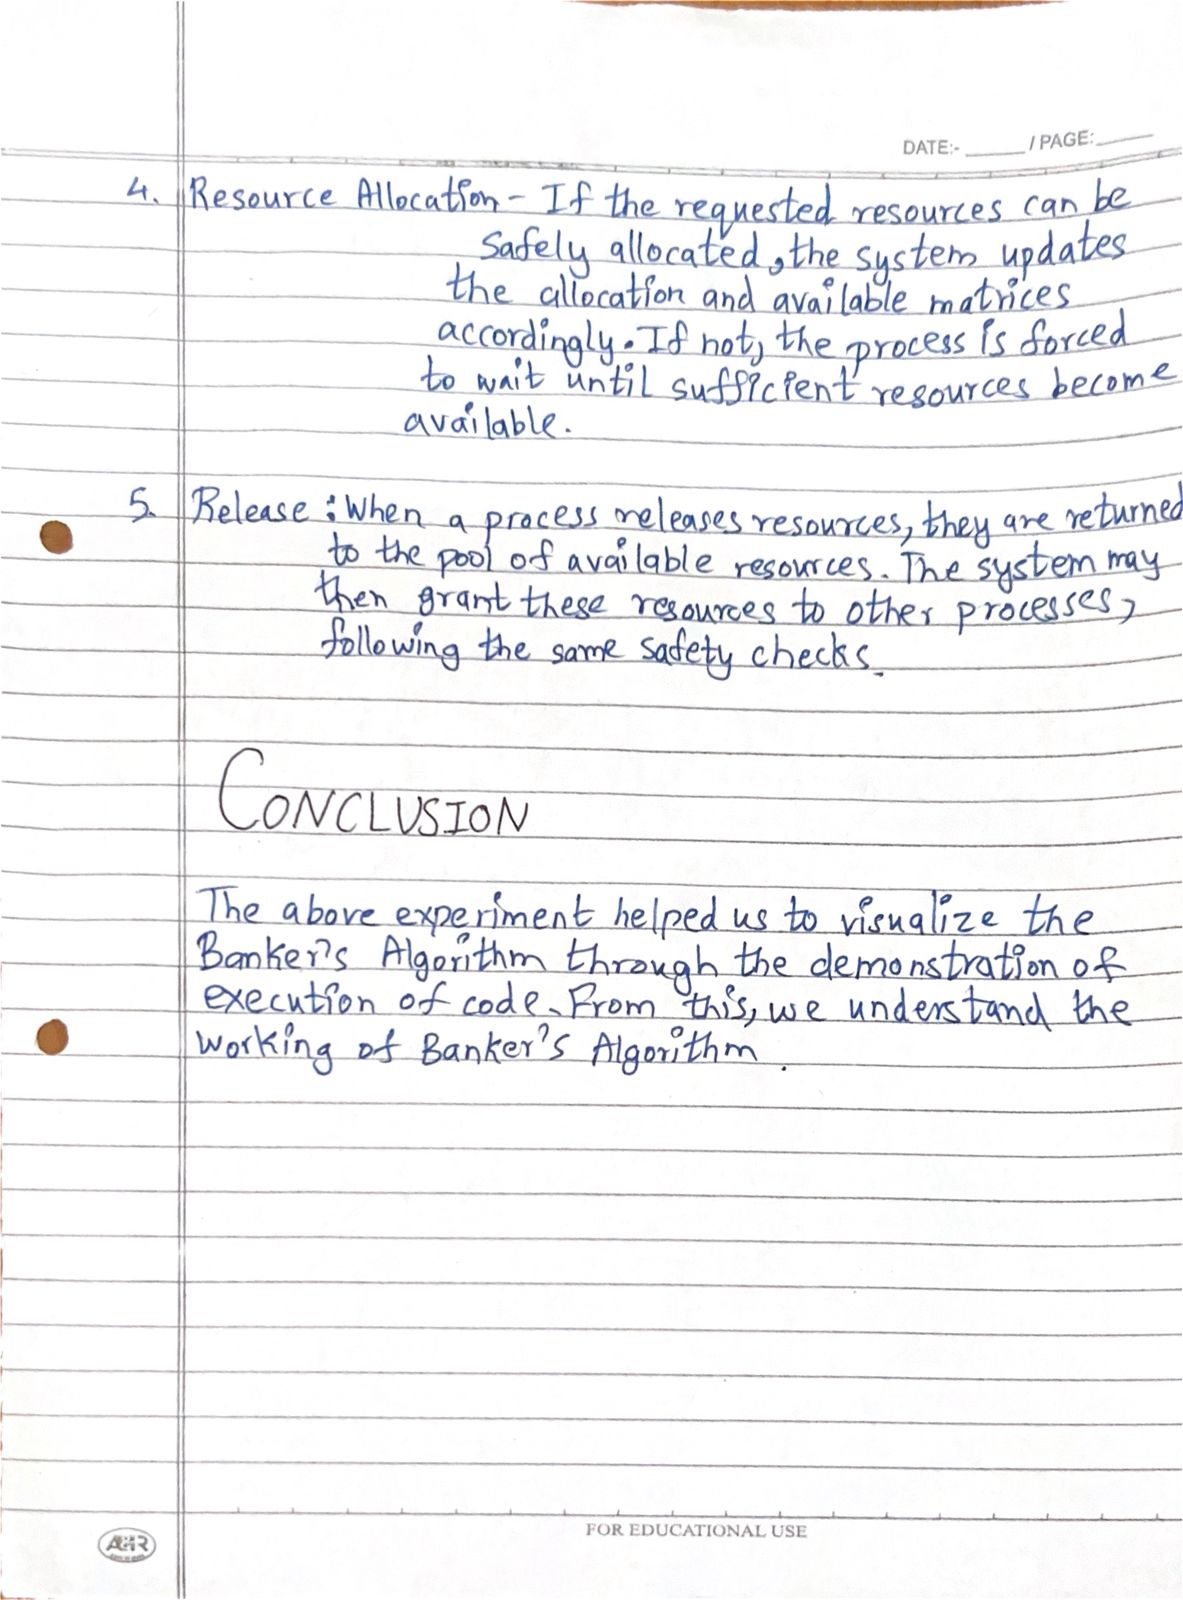 DATE:- ______ / PAGE: ______
4. Resource Allocation - If the requested resources can be
safely allocated, the system updates
the allocation and available matrices
accordingly. If not, the process is forced
to wait until sufficient resources become
available.
5. Release : When a process releases resources, they are returned
to the pool of available resources. The system may
then grant these resources to other processes,
following the same safety checks.
CONCLUSION
The above experiment helped us to visualize the
Banker's Algorithm through the demonstration of
execution of code. From this, we understand the
working of Banker's Algorithm.
FOR EDUCATIONAL USE